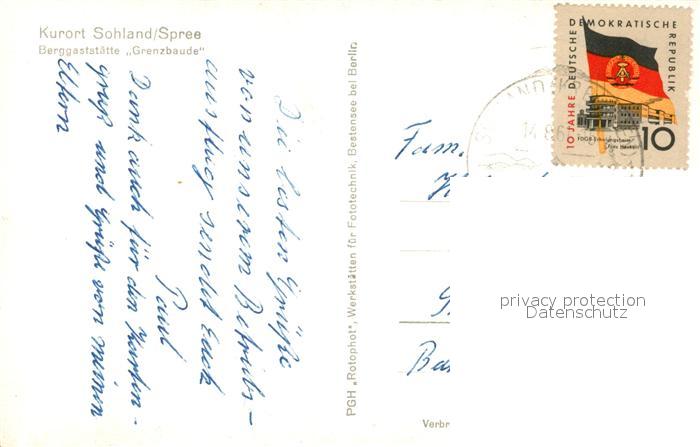 Kurort Sohland/Spree
Berggaststätte „Grenzbaude"
Die besten Grüße
von unserem Betriebs-
ausfluge sendet Euch
Paul
Dank auch für den Karten-
gruß und Grüße von meinen
Eltern
PGH „Rotophot", Werkstätten für Fototechnik, Bestensee bei Berlin.
10 JAHRE DEUTSCHE DEMOKRATISCHE REPUBLIK
10
Fam.
privacy protection
Datenschutz
Verbr